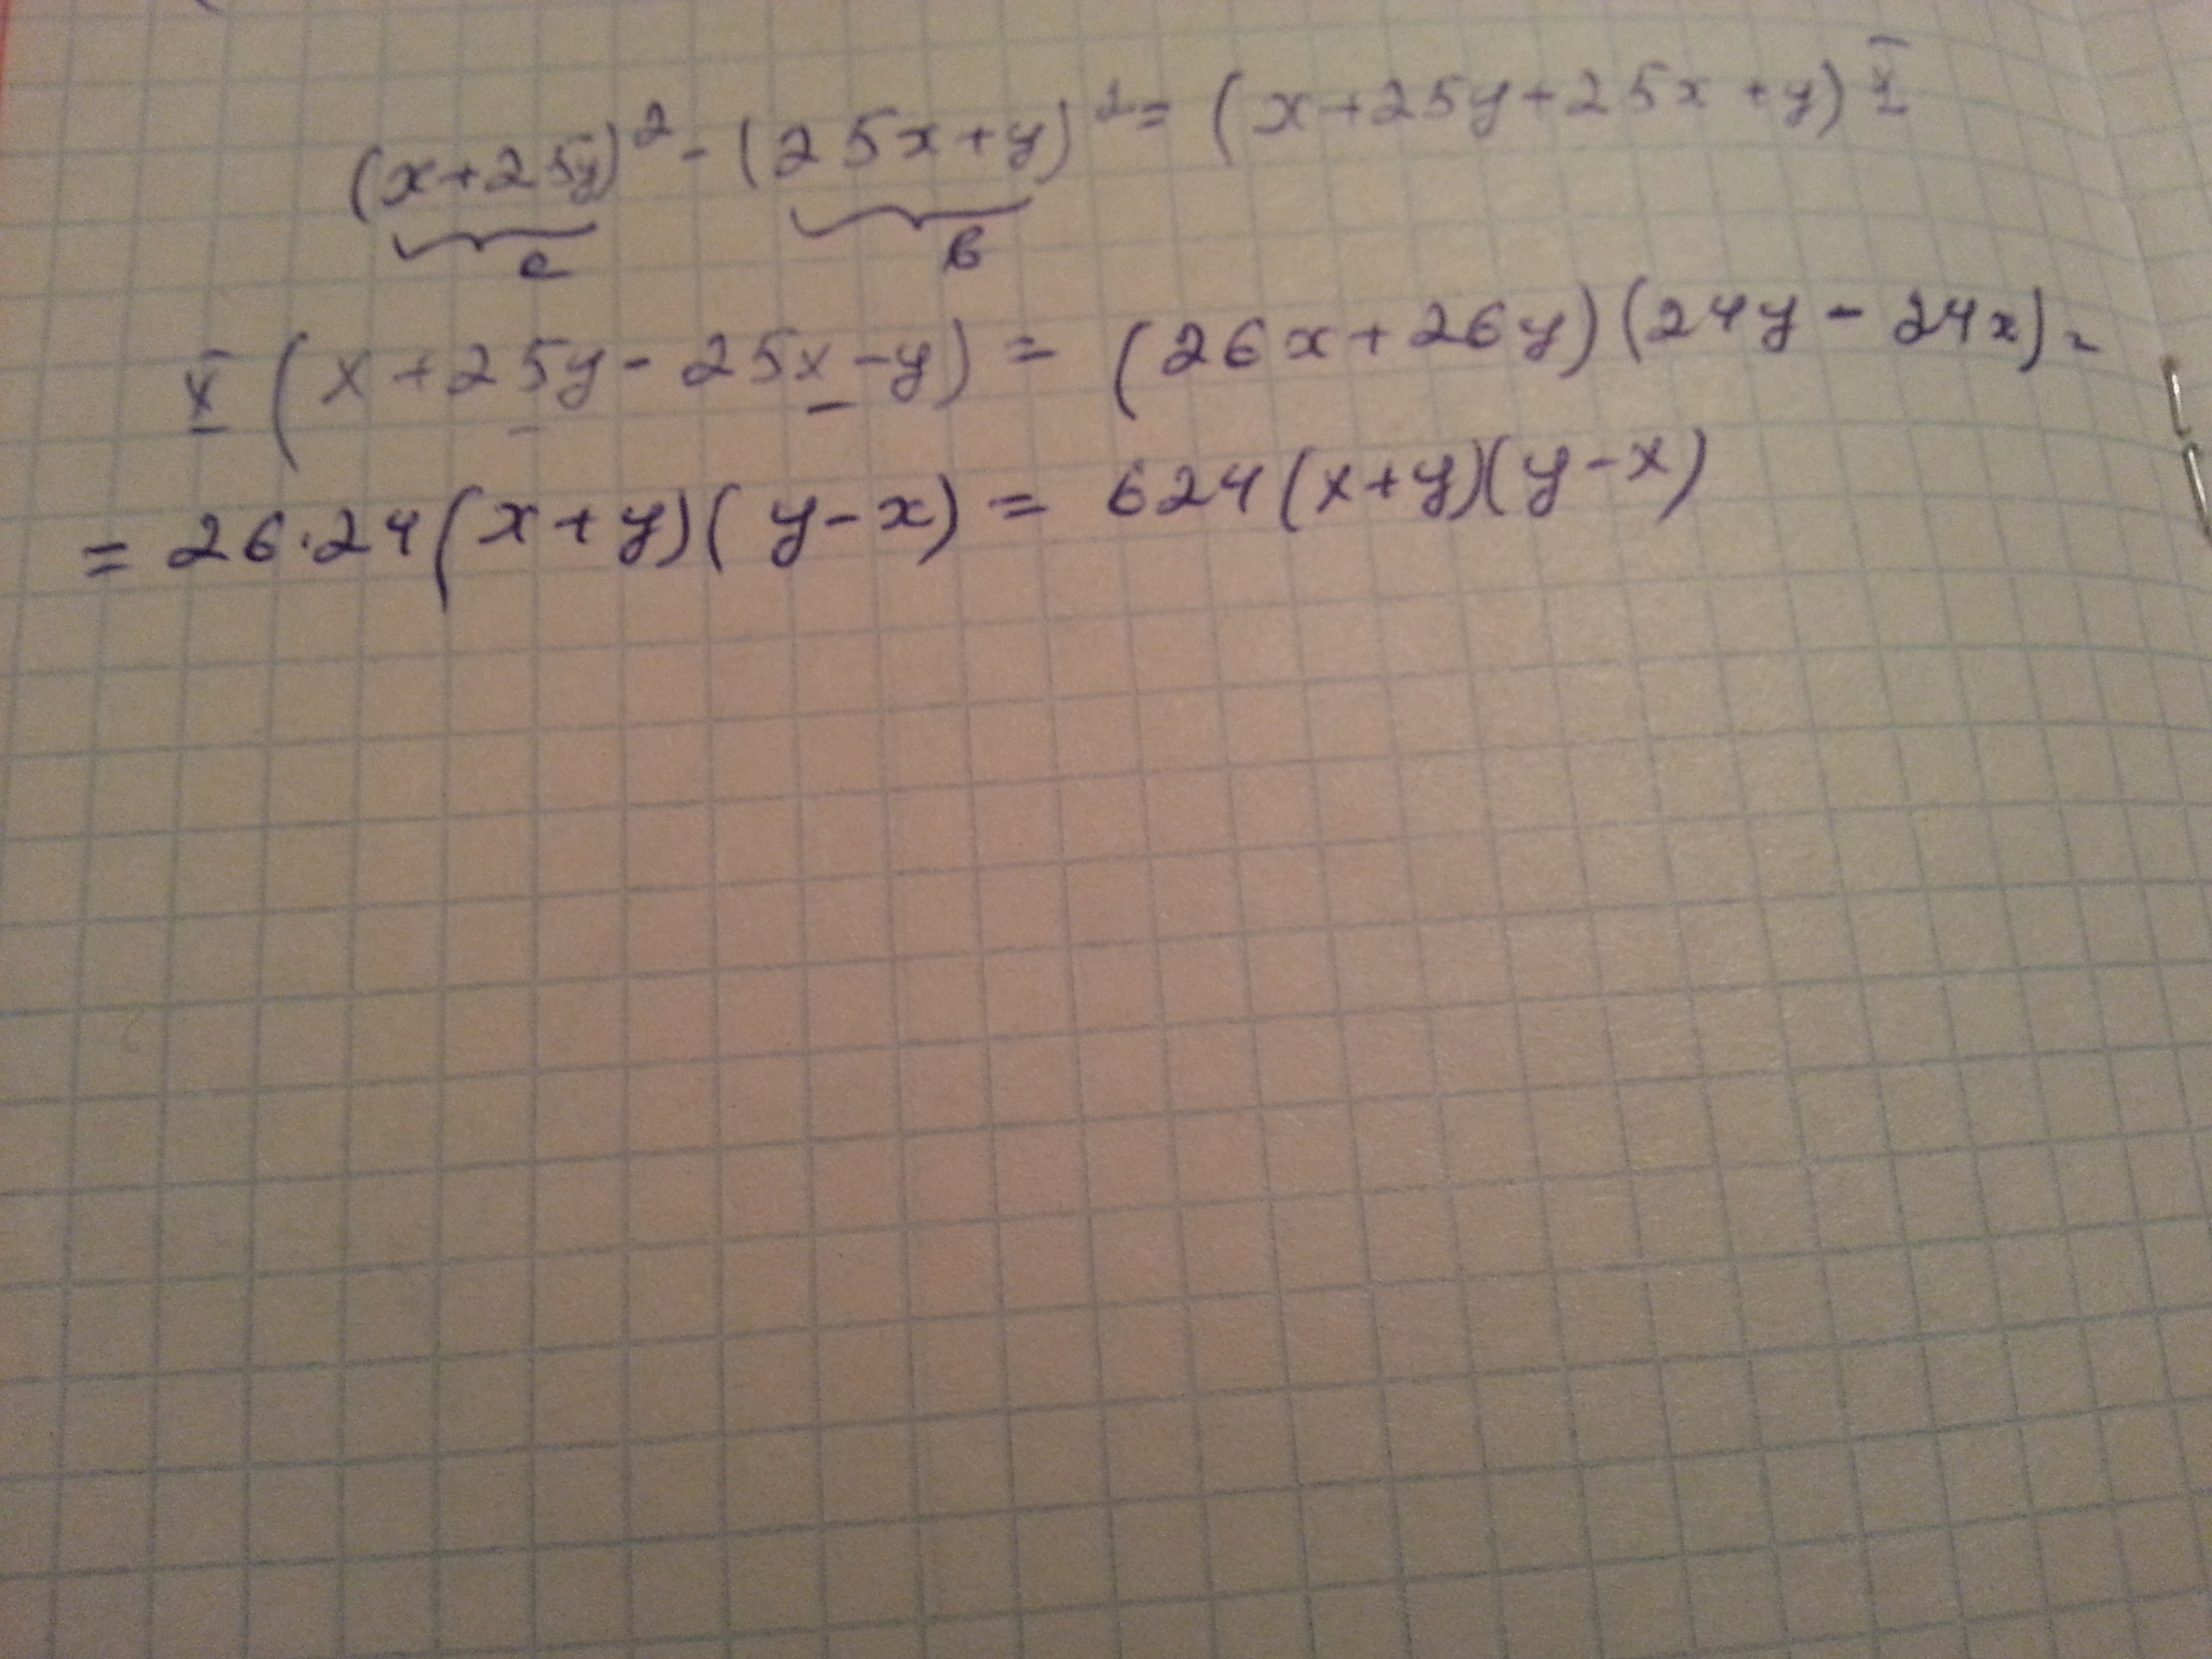 (x+25y)² - (25x+y)² = (x+25y+25x+y) x
a b
x (x+25y-25x-y) = (26x+26y)(24y-24x) =
= 26·24(x+y)(y-x) = 624(x+y)(y-x)